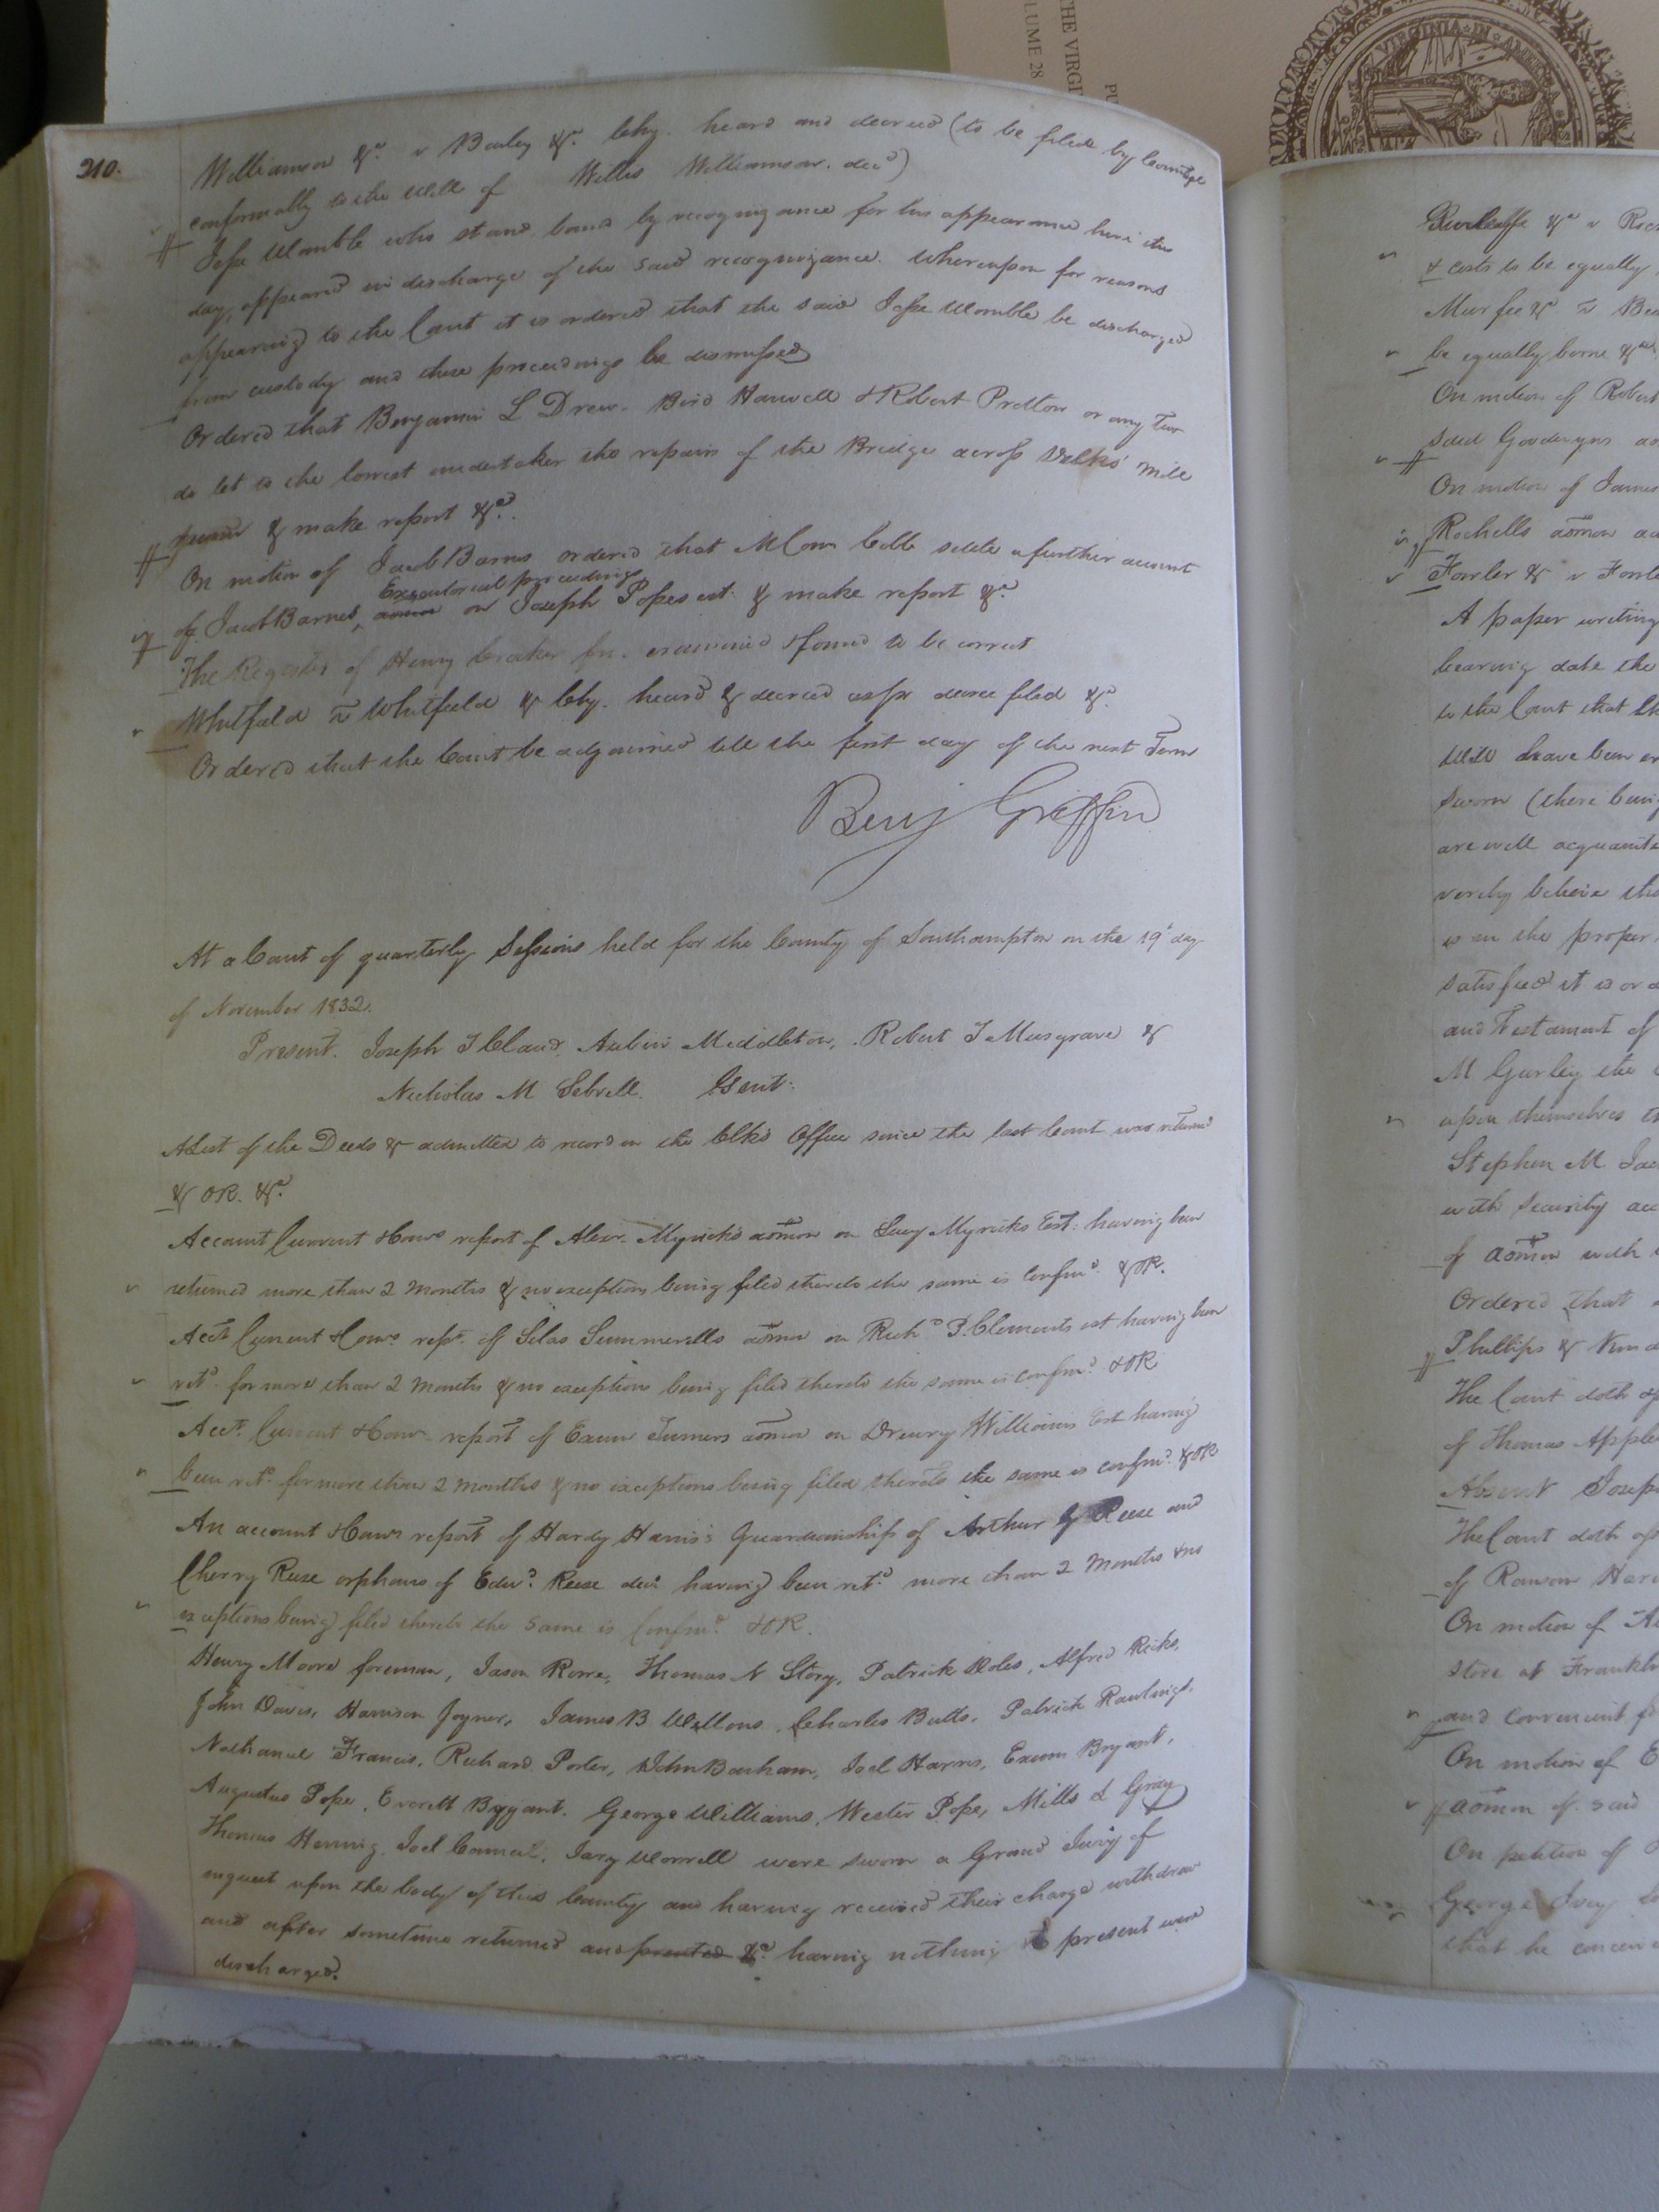 THE VIRGI
LUME 28
PU
VIRGINIA IN
210.
Williamson &c. v Bailey &c. Chy. heard and decreed (to be filed by Counsel
conformably to the Will of Willis Williamson. decd)
Jesse Womble who stand bound by recognizance for his appearance here this
day, appeared in discharge of the said recognizance. Whereupon for reasons
appearing to the Court it is ordered that the said Jesse Womble be discharged
from custody and these proceedings be dismissed
Ordered that Benjamin L Drew. Bird Harwell & Robert Pretlow or any two
do let to the lowest undertaker the repairs of the Bridge across mill
& make report &c.
On motion of Jacob Barnes ordered that Cobb settle a further account
Executorial proceedings
of Jacob Barnes, admon on Joseph Popes est. & make report &c
The Register of Henry Croker fn. examined & found to be correct
Whitfield v Whitfield & Chy. heard & decreed as pr decree filed &c.
Ordered that the Court be adjourned till the first day of the next Term
Benj Griffin
At a Court of quarterly Sessions held for the County of Southampton on the 19th day
of November 1832.
Present. Joseph T Claud, Aubin Middleton, Robert T Musgrave &
Nicholas M Sebrell. Gent:
A List of the Deeds & admitted to record in the Clks Office since the last Court was returnd
& OR. &c.
Account Current & Comrs report of Alexr. Myrick's admon on Lucy Myricks Est: having been
returned more than 2 months & no exceptions being filed thereto the same is Confmd. & OR.
Acct. Current & Comrs. rept. of Silas Summerells admon on Richd P. Clements est having been
retd. for more than 2 months & no exceptions being filed thereto the same is confmd. & OR
Acct. Current & Comrs report of Exum Turners admon on Drewry Williams Est having
been retd. for more than 2 months & no exceptions being filed thereto the same is confmd. & OR
An account & Comrs report of Hardy Harris's Guardianship of Arthur G Reese and
Cherry Reese orphans of Edwd. Reese decd. having been retd. more than 2 Months & no
exceptions being filed thereto the same is Confmd. & OR.
Henry Moore foreman, Jason Rowe, Thomas N Story, Patrick Doles, Alfred Ricks,
John Davis, Harrison Joyner, James B Wellons, Charles Butts, Patrick Rawlings,
Nathaniel Francis, Richard Porter, John Barham, Joel Harris, Exum Bryant,
Augustus Pope, Everett Bryant, George Williams, Wester Pope, Mills L Gray
Thomas Herring, Joel Council, Jary Worrell were sworn a Grand Jury of
inquest upon the body of this County and having received their charge withdrew
and after sometime returned and prented &c. having nothing to present were
discharged.
&c v
& costs to be equally
Murfee & v
be equally borne &c
On motion of Robert
said Goodwyns
On motion of James
Rochells admon
Fowler & v
A paper writing
bearing date the
to the Court that
Will have been
sworn (there being
are well
verily believe
in the proper
satisfied it is
and Testament of
M Gurley the
upon themselves
Stephen M
with security
of admon with
Ordered that
Phillips &
The Court doth
of Thomas
Absent
The Court doth
of Ransom
On motion of
store at
and convenient
On motion of
admon of said
On petition of
George Ivey
that he